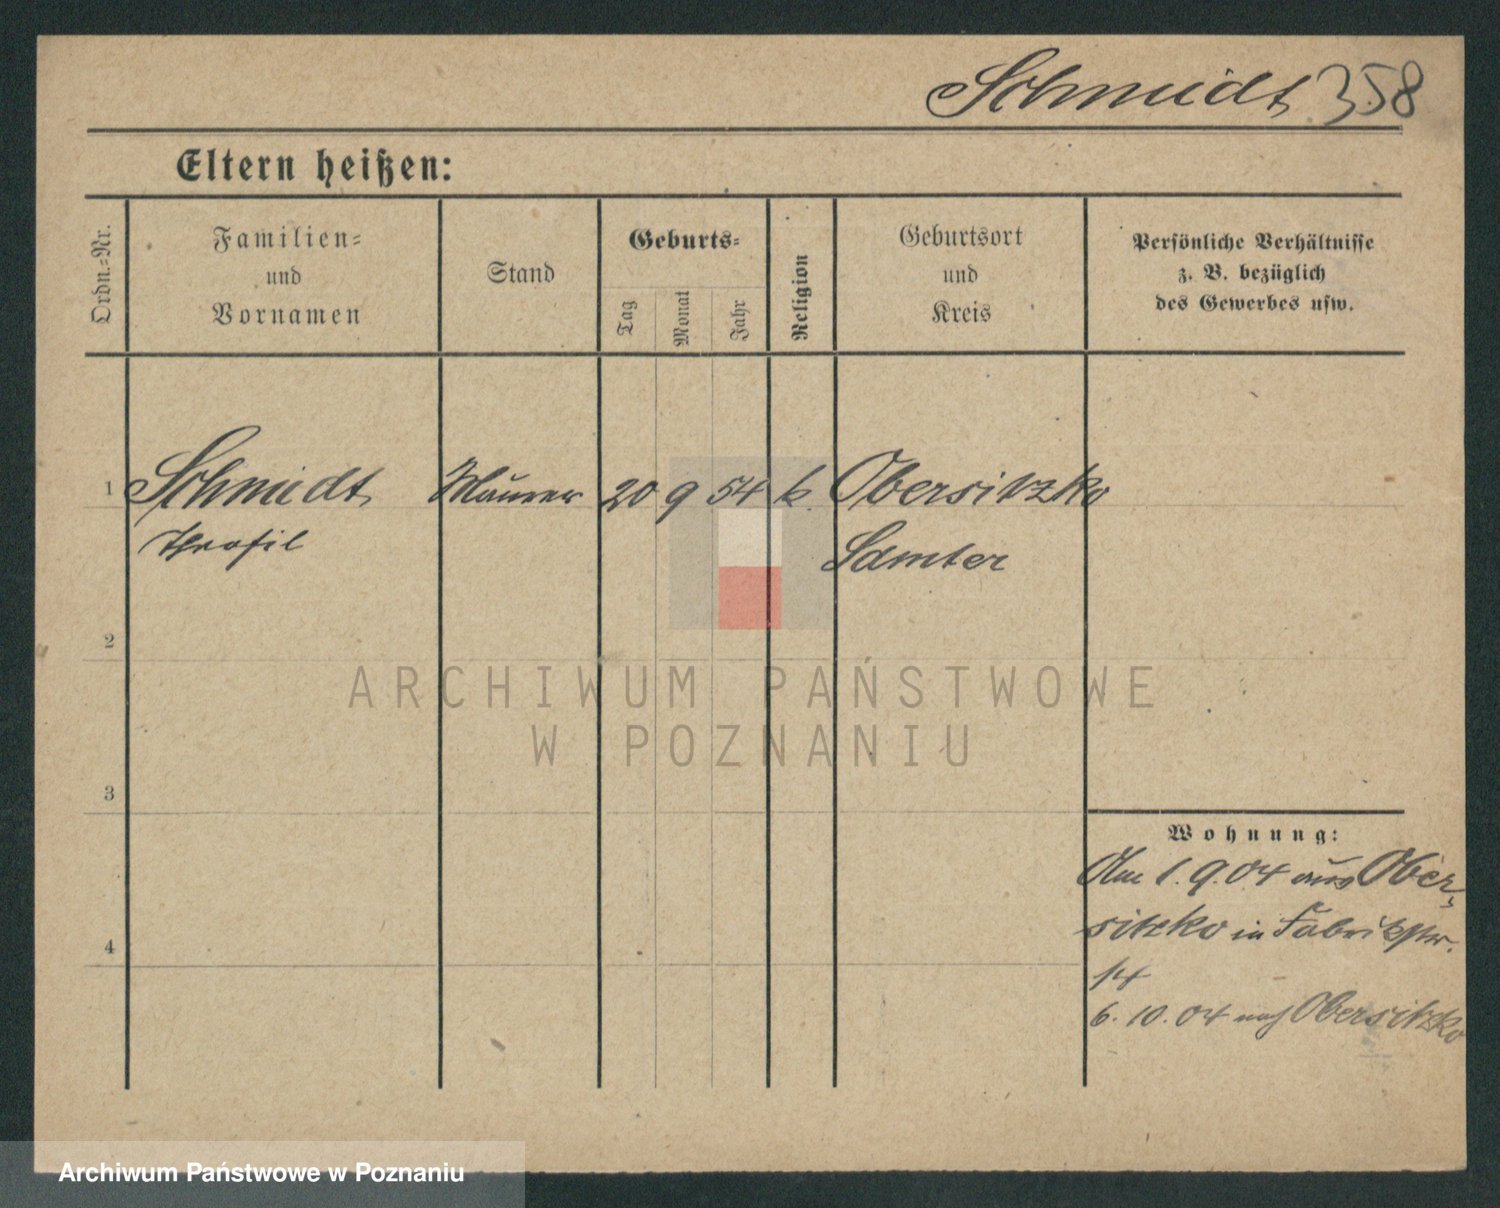 Schmidt 358
Eltern heißen:
Ordn.-Nr.
Familien-
und
Vornamen
Stand
Geburts-
Tag
Monat
Jahr
Religion
Geburtsort
und
Kreis
Persönliche Verhältnisse
z. B. bezüglich
des Gewerbes usw.
1 Schmidt Maurer 20 9 54 k. Obersitzko
Samter
2
ARCHIWUM PAŃSTWOWE
W POZNANIU
3
Wohnung:
Am 1.9.04 aus Ober-
sitzko in Fabrikstr.
14
4
6.10.04 nach Obersitzko
Archiwum Państwowe w Poznaniu